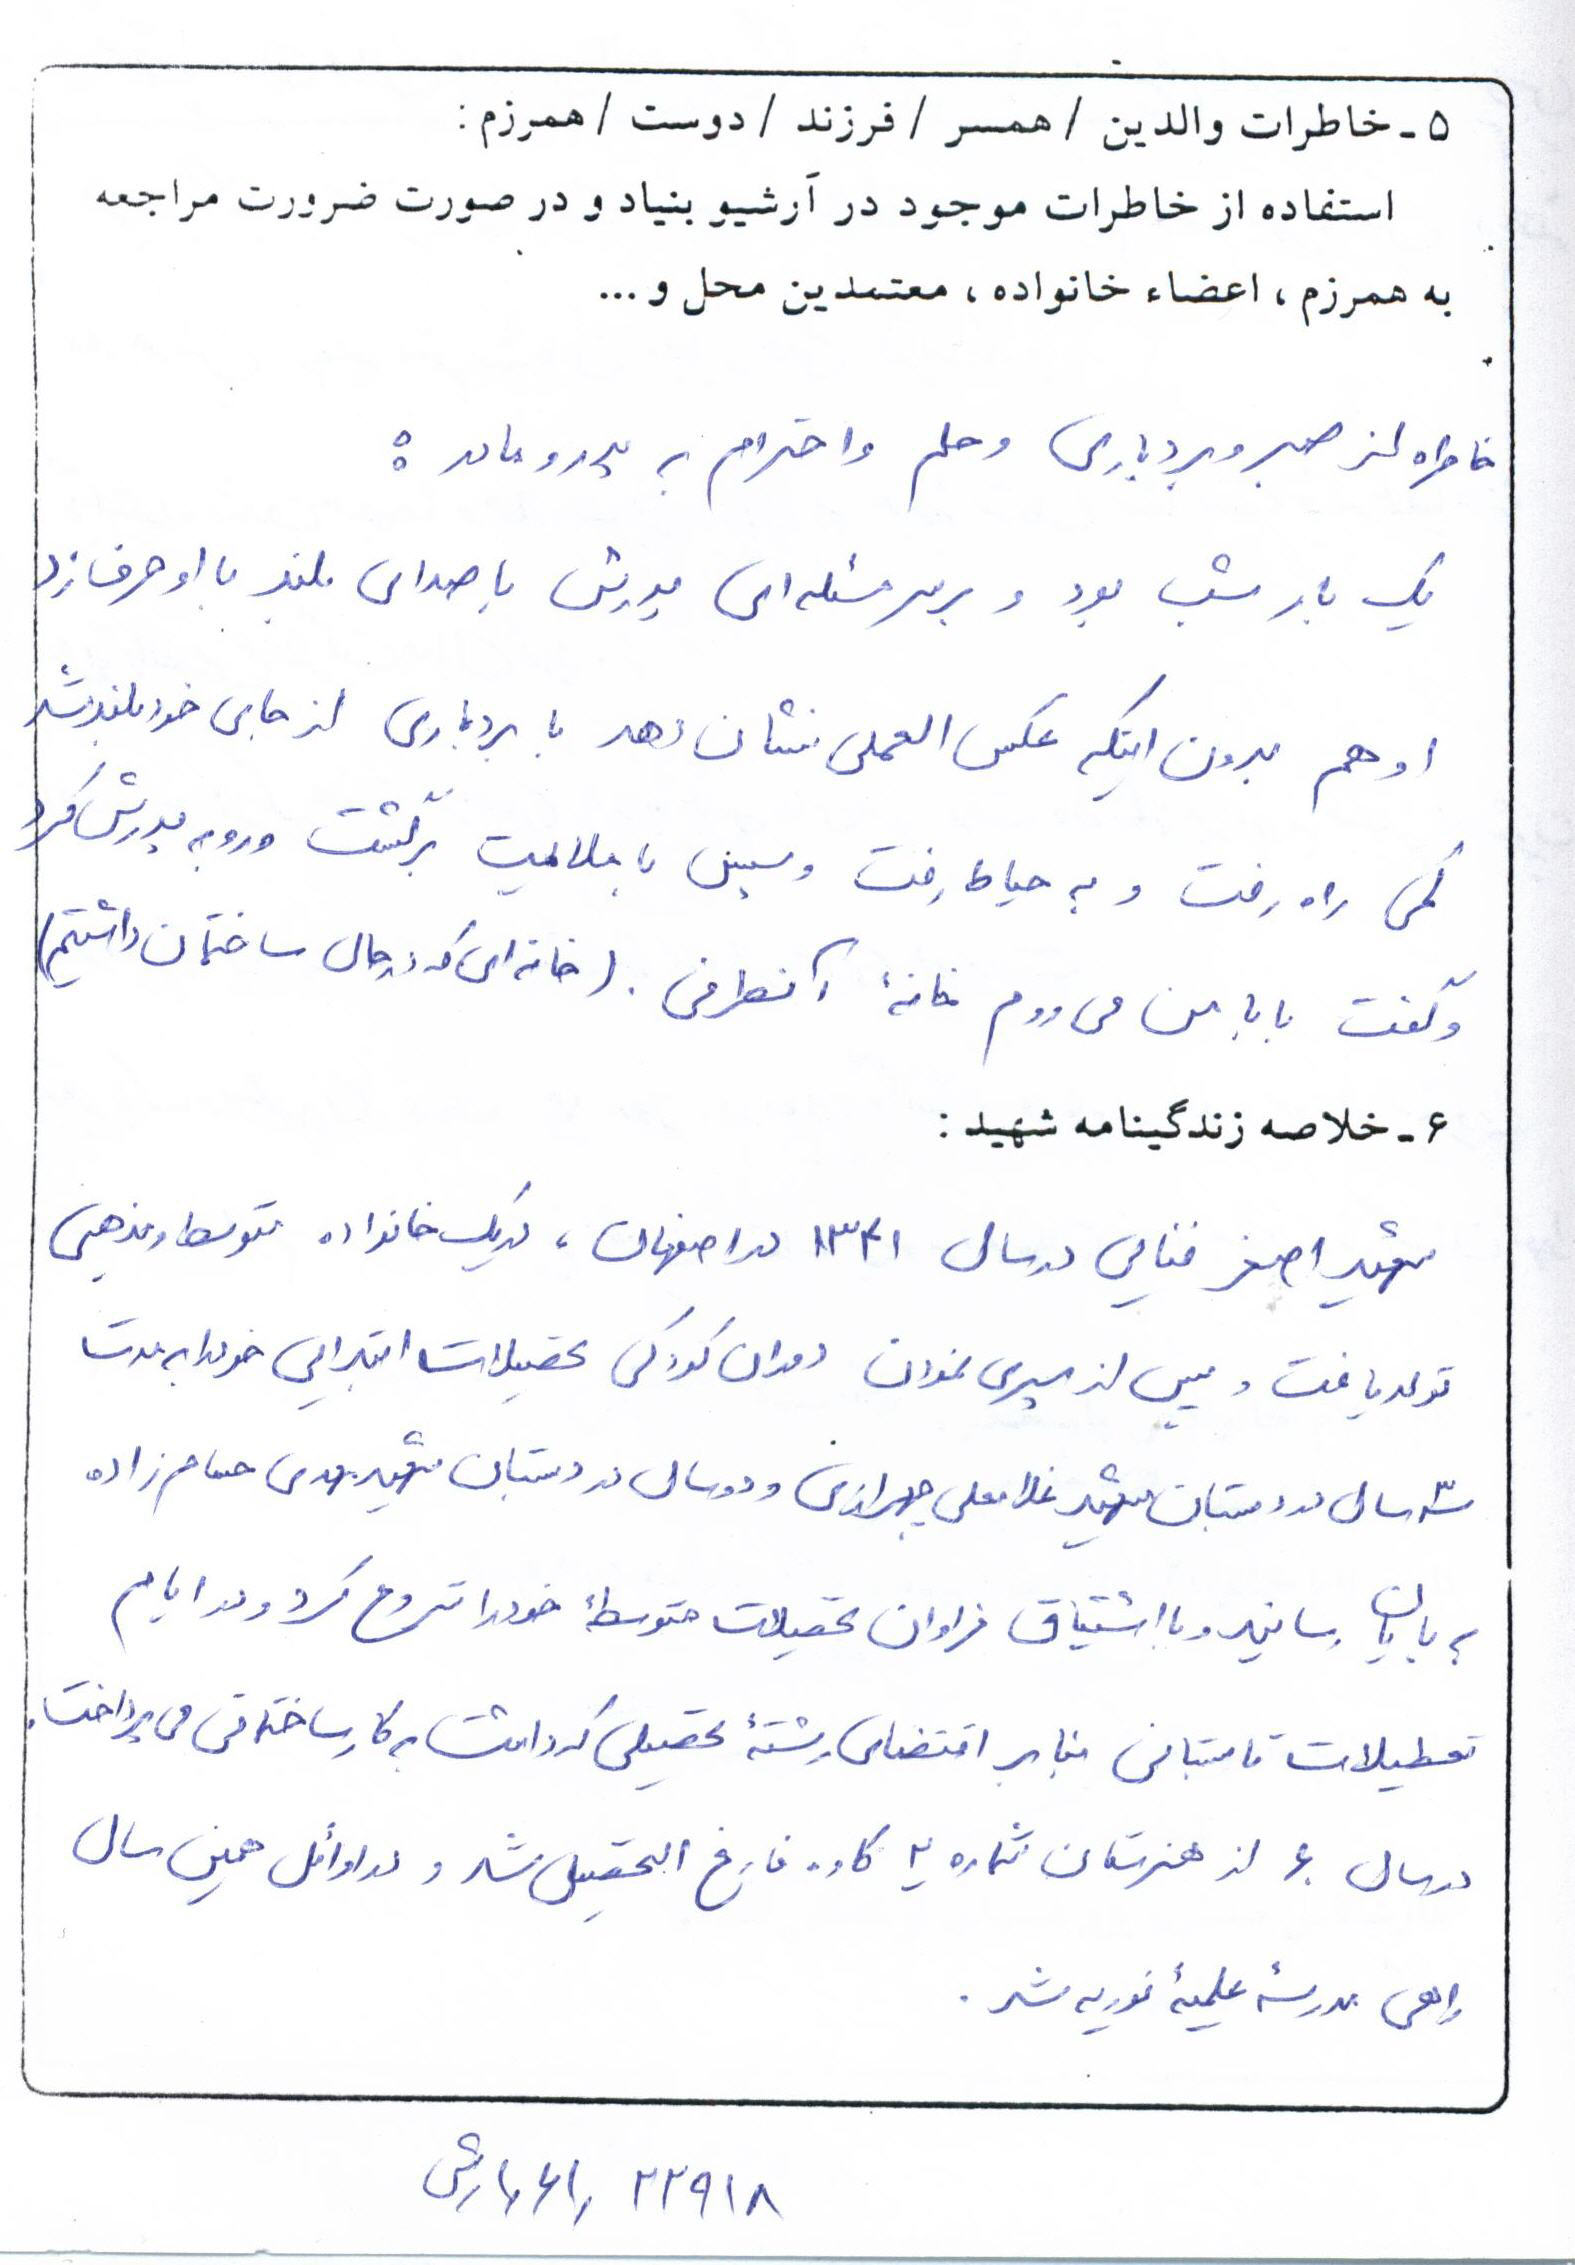 ۵ - خاطرات والدین / همسر / فرزند / دوست / همرزم :
استفاده از خاطرات موجود در آرشیو بنیاد و در صورت ضرورت مراجعه
به همرزم ، اعضاء خانواده ، معتمدین محل و ...
خاطراه از صبر و بردباری و حلم و احترام به پدر و مادر :
یک بار شب بود و بر سر مسئله ای پدرش با صدای بلند با او حرف زد
او هم بدون اینکه عکس العملی نشان دهد با بردباری از جای خود بلند شد
کمی راه رفت و به حیاط رفت و سپس با ملایمت برگشت و رو به پدرش کرد
و گفت بابا من می روم خانهٔ آنطرفی . (خانه ای که در حال ساختمان داشتیم)
۶ - خلاصه زندگینامه شهید :
شهید اصغر فنایی در سال ۱۳۴۱ در اصفهان ، در یک خانواده متوسط و مذهبی
تولد یافت و پس از سپری نمودن دوران کودکی تحصیلات ابتدایی خود را به مدت
۳ سال در دبستان شهید غلامعلی چهرازی و دو سال در دبستان شهید مهدی حسام زاده
به پایان رسانید و با اشتیاق فراوان تحصیلات متوسطهٔ خود را شروع کرد و در ایام
تعطیلات تابستانی بنابر اقتضای رشتهٔ تحصیلی که داشت به کار ساختمانی می پرداخت.
در سال ۶۰ از هنرستان شماره ۲ کاوه فارغ التحصیل شد و در اوائل همین سال
راهی مدرسهٔ علمیهٔ نوریه شد .
۲۲۹۱۸